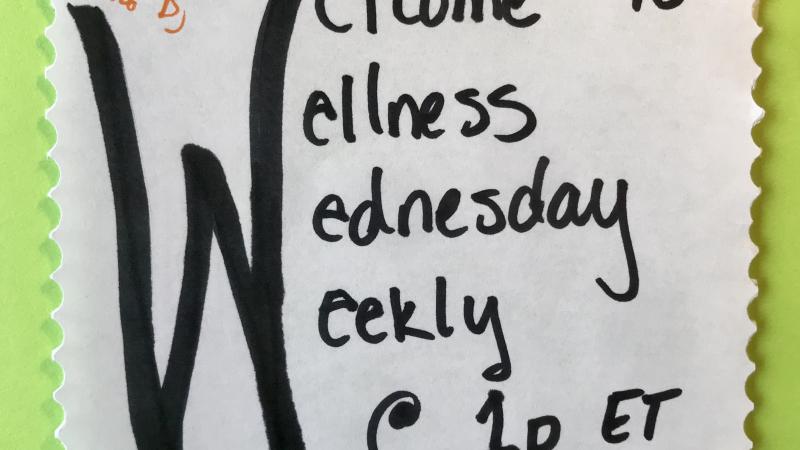 Welcome to
Wellness
Wednesday
Weekly
@ 1p ET